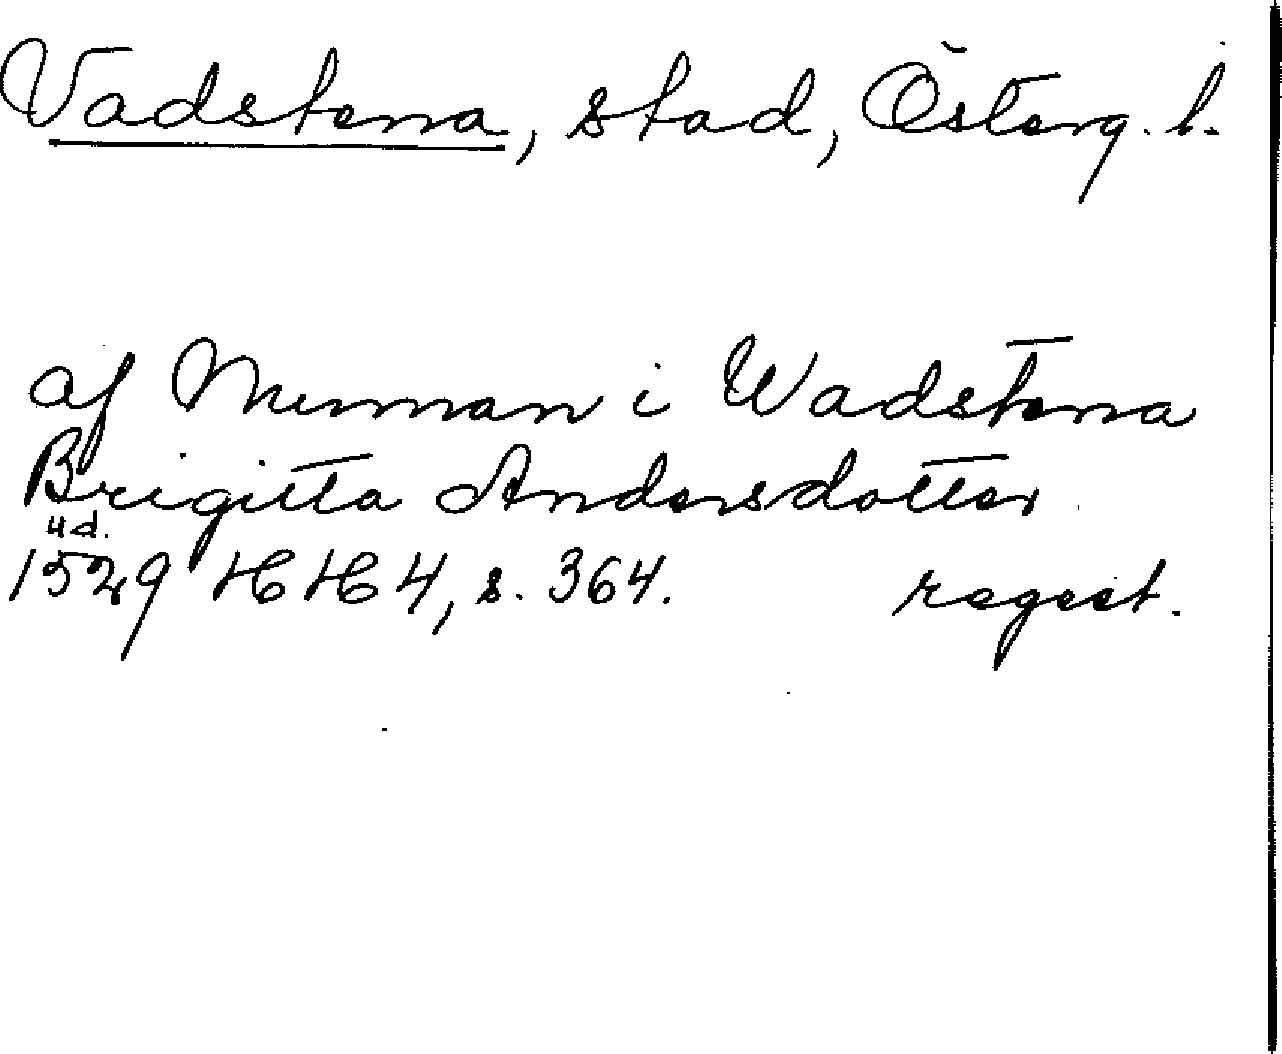 Vadstena, stad, Österg. l.
af Nunnan i Wadstena
Brigitta Andersdotter
ud.
1529 HH 4, s. 364. regest.